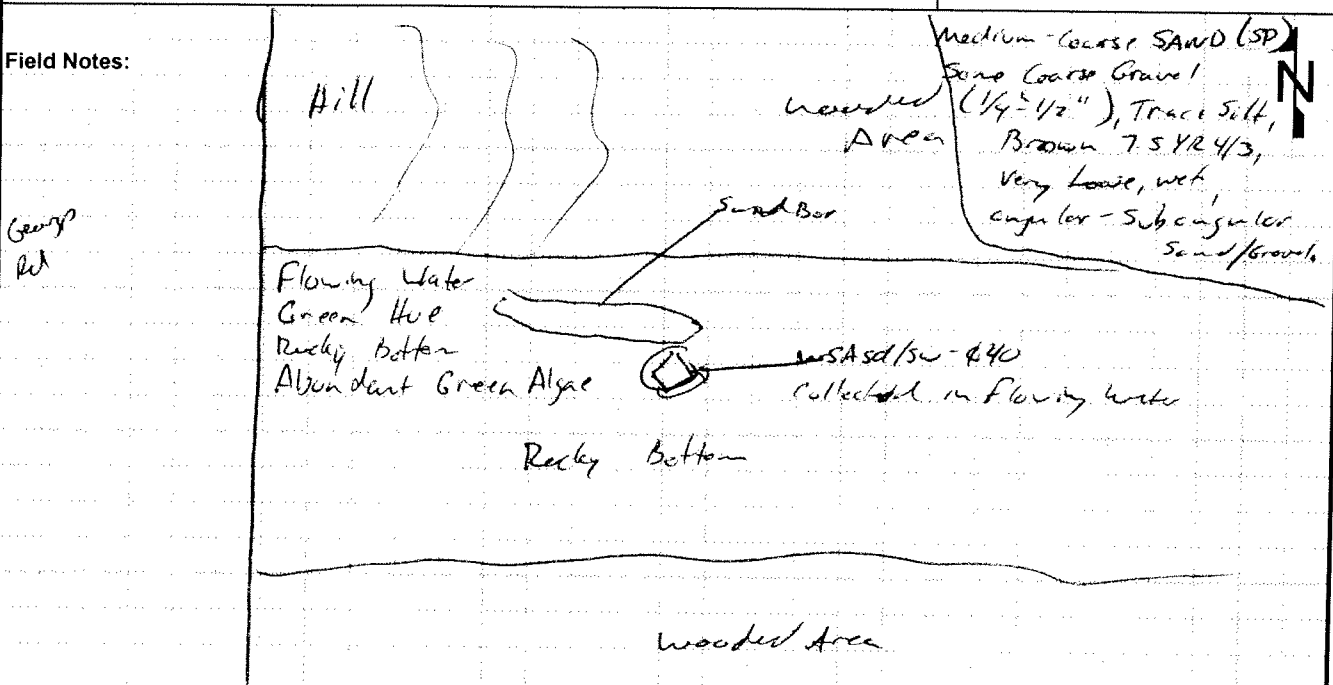 Field Notes:
Hill
Wooded
Area
Medium-Coarse SAND (SP)
Some Coarse Gravel
(1/4"-1/2"), Trace Silt,
Brown 7.5 YR 4/3,
Very Loose, wet,
angular-Subangular
Sand/Gravel.
N
Rd
Sand Bar
Flowing Water
Green Hue
Rocky Bottom
Abundant Green Algae
Collected in flowing water
Rocky Bottom
Wooded Area